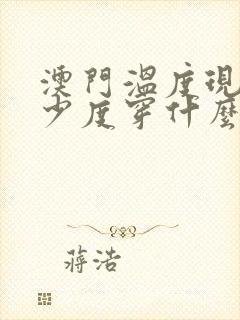 澳門溫度現
少度穿什麼
蔣浩